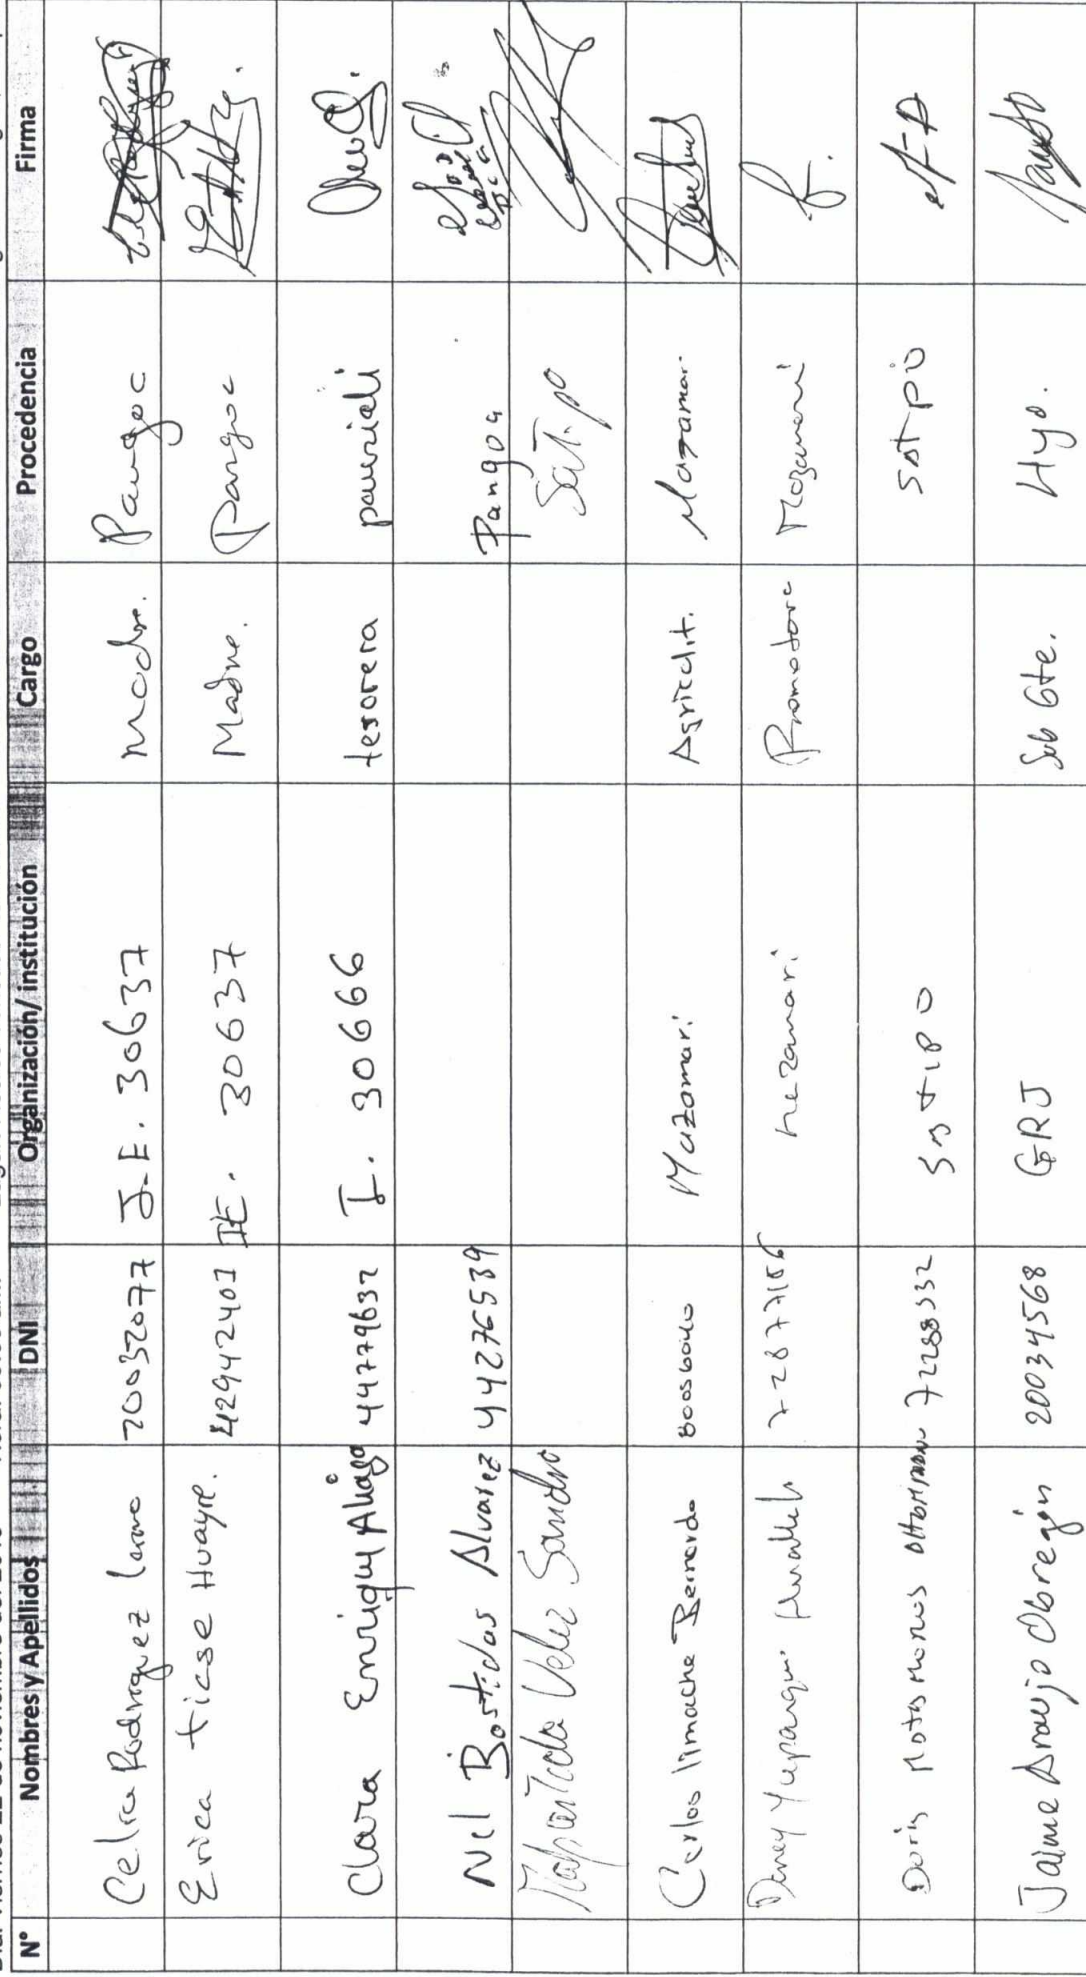 N° Nombres y Apellidos DNI Organización/ institución Cargo Procedencia Firma
Celia Rodroguez 20032077 I.E. 30637 Madre. Pangoc
Erica ticse Huayre. 42942401 IE. 30637 Madre. Pangoc
Clara Enriquez Aliaga 44779632 I. 30666 tesorera pauriali
Nel Bastidas Alvarez 44276539 Pangoa
Velez Sandro Satipo
Carlos limache Bernardo 80056040 Mazamari Agricult. Mazamar.
Yupanqui 72877186 Mezamari Promotora Mazamari
Doris 72288332 Satipo Satpio
Jaime Araujo Obregón 20034568 GRJ Sub Gte. Hyo.